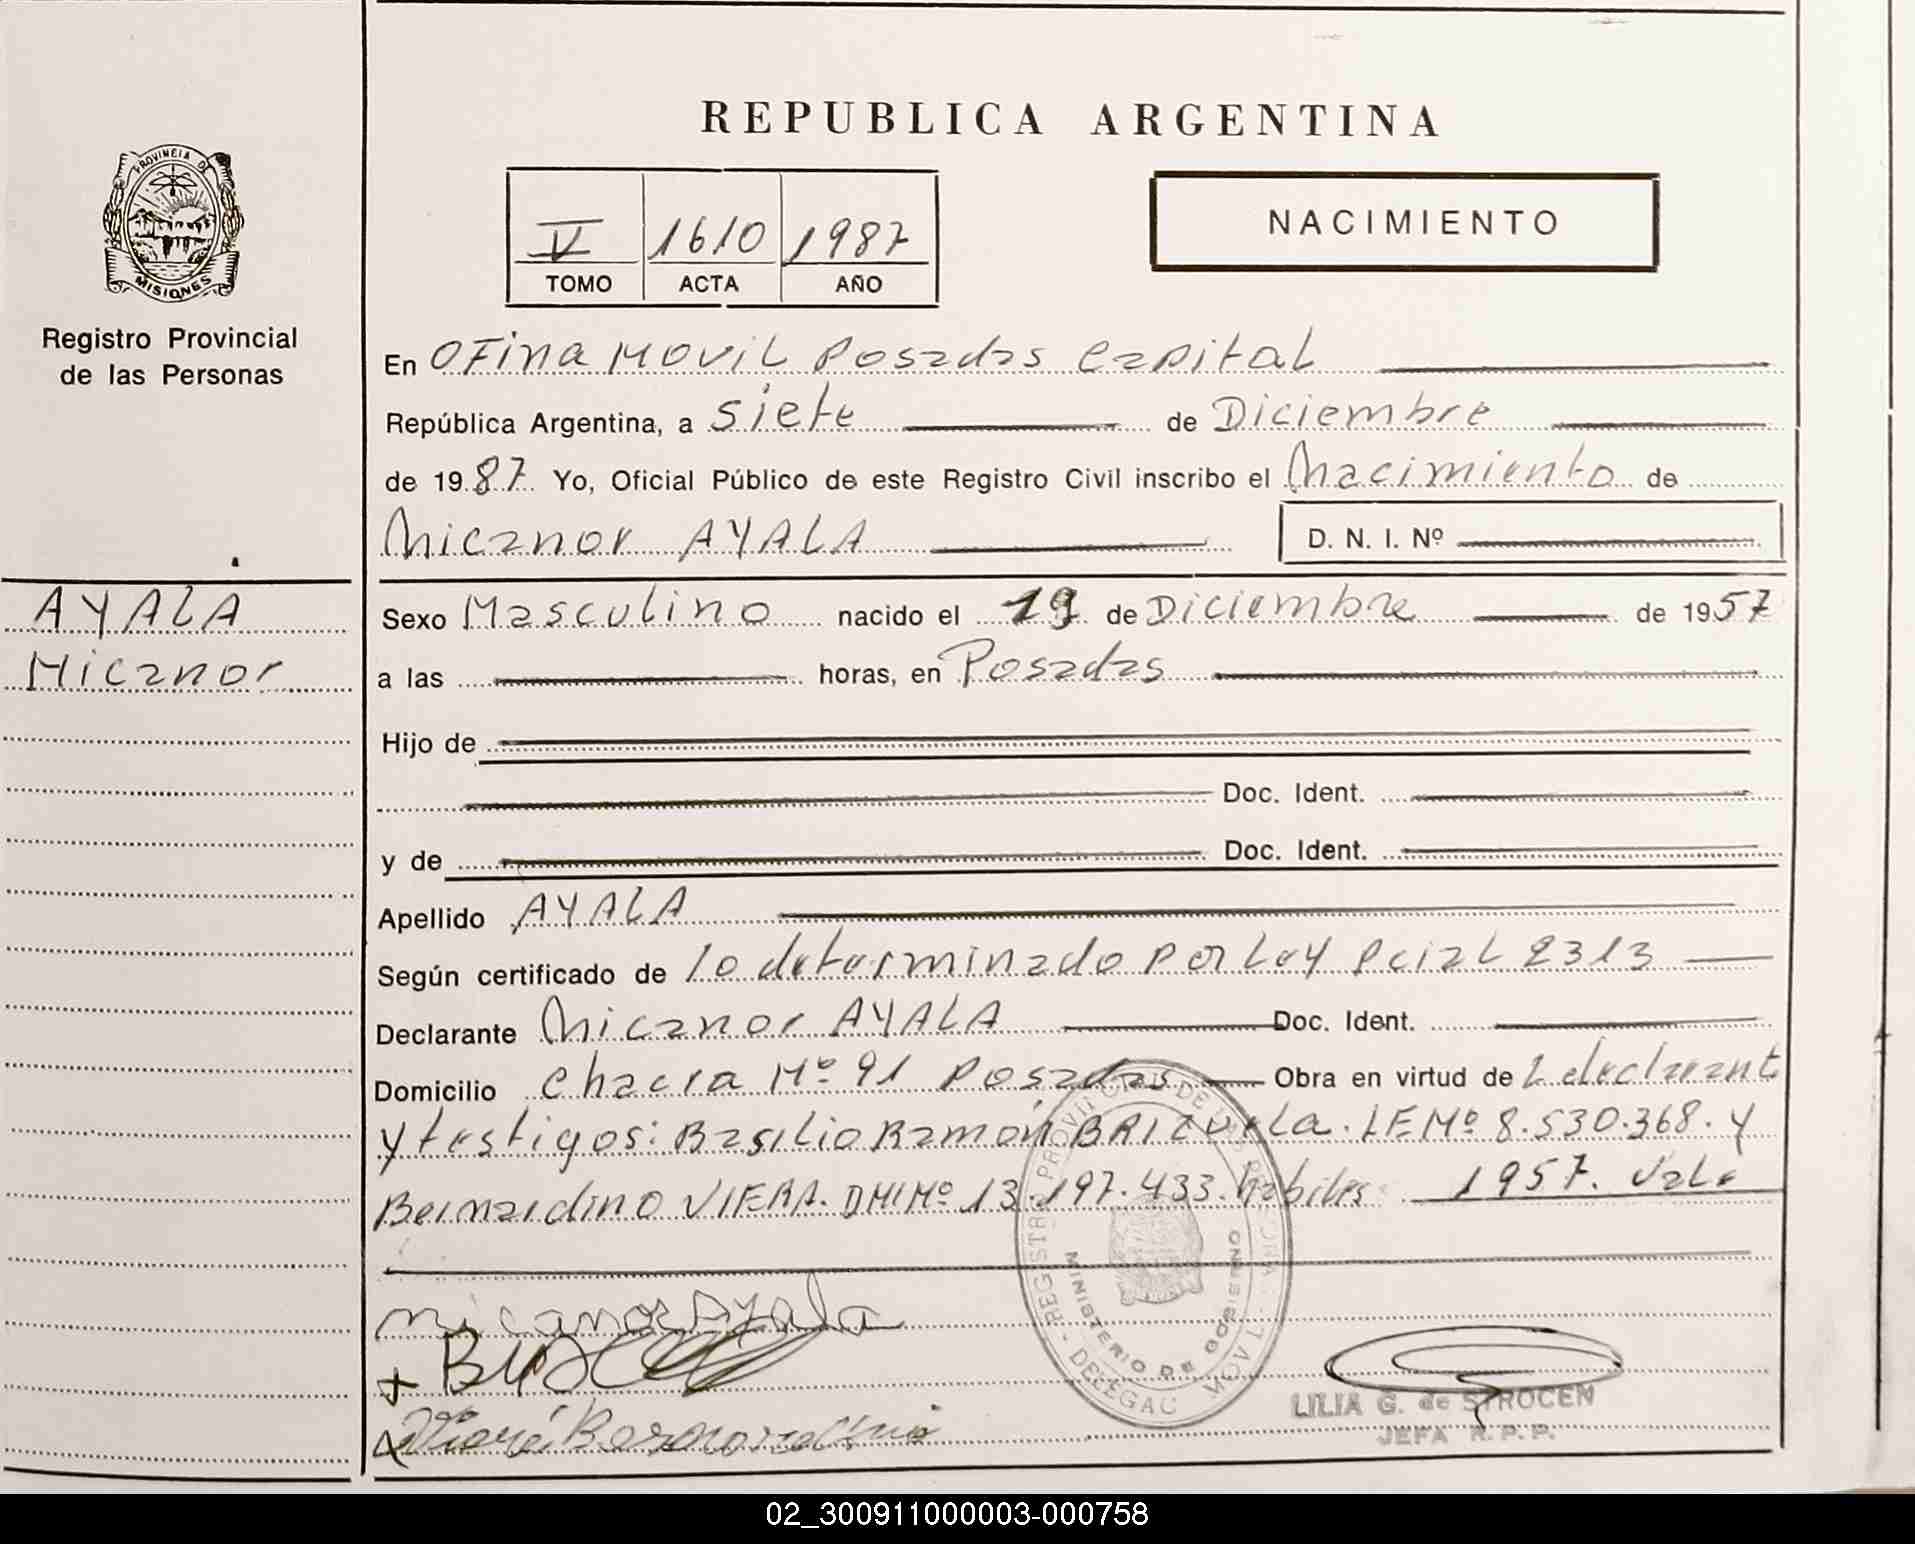 REPUBLICA ARGENTINA
PROVINCIA DE
MISIONES
Registro Provincial
de las Personas
V 1610 1987
TOMO ACTA AÑO
NACIMIENTO
En OFina MOVIL Posadas Capital
República Argentina, a Siete de Diciembre
de 1987 Yo, Oficial Público de este Registro Civil inscribo el Nacimiento de
Nicanor AYALA D. N. I. Nº
AYALA
Nicanor
Sexo Masculino nacido el 19 de Diciembre de 1957
a las horas, en Posadas
Hijo de
Doc. Ident.
y de Doc. Ident.
Apellido AYALA
Según certificado de lo determinado por Ley Pcial 2313
Declarante Nicanor AYALA Doc. Ident.
Domicilio Chacra Nº 91 Posadas Obra en virtud de L declarant
y testigos: Basilio Ramón BRIZUELA. LE Nº 8.530.368. y
Bernardino VIERA. DNI Nº 13.197.433. habiles 1957. Vale
Nicanor Ayala
MINISTERIO DE GOBIERNO
LILIA G. de STROCEN
JEFA R.P.P.
02_300911000003-000758